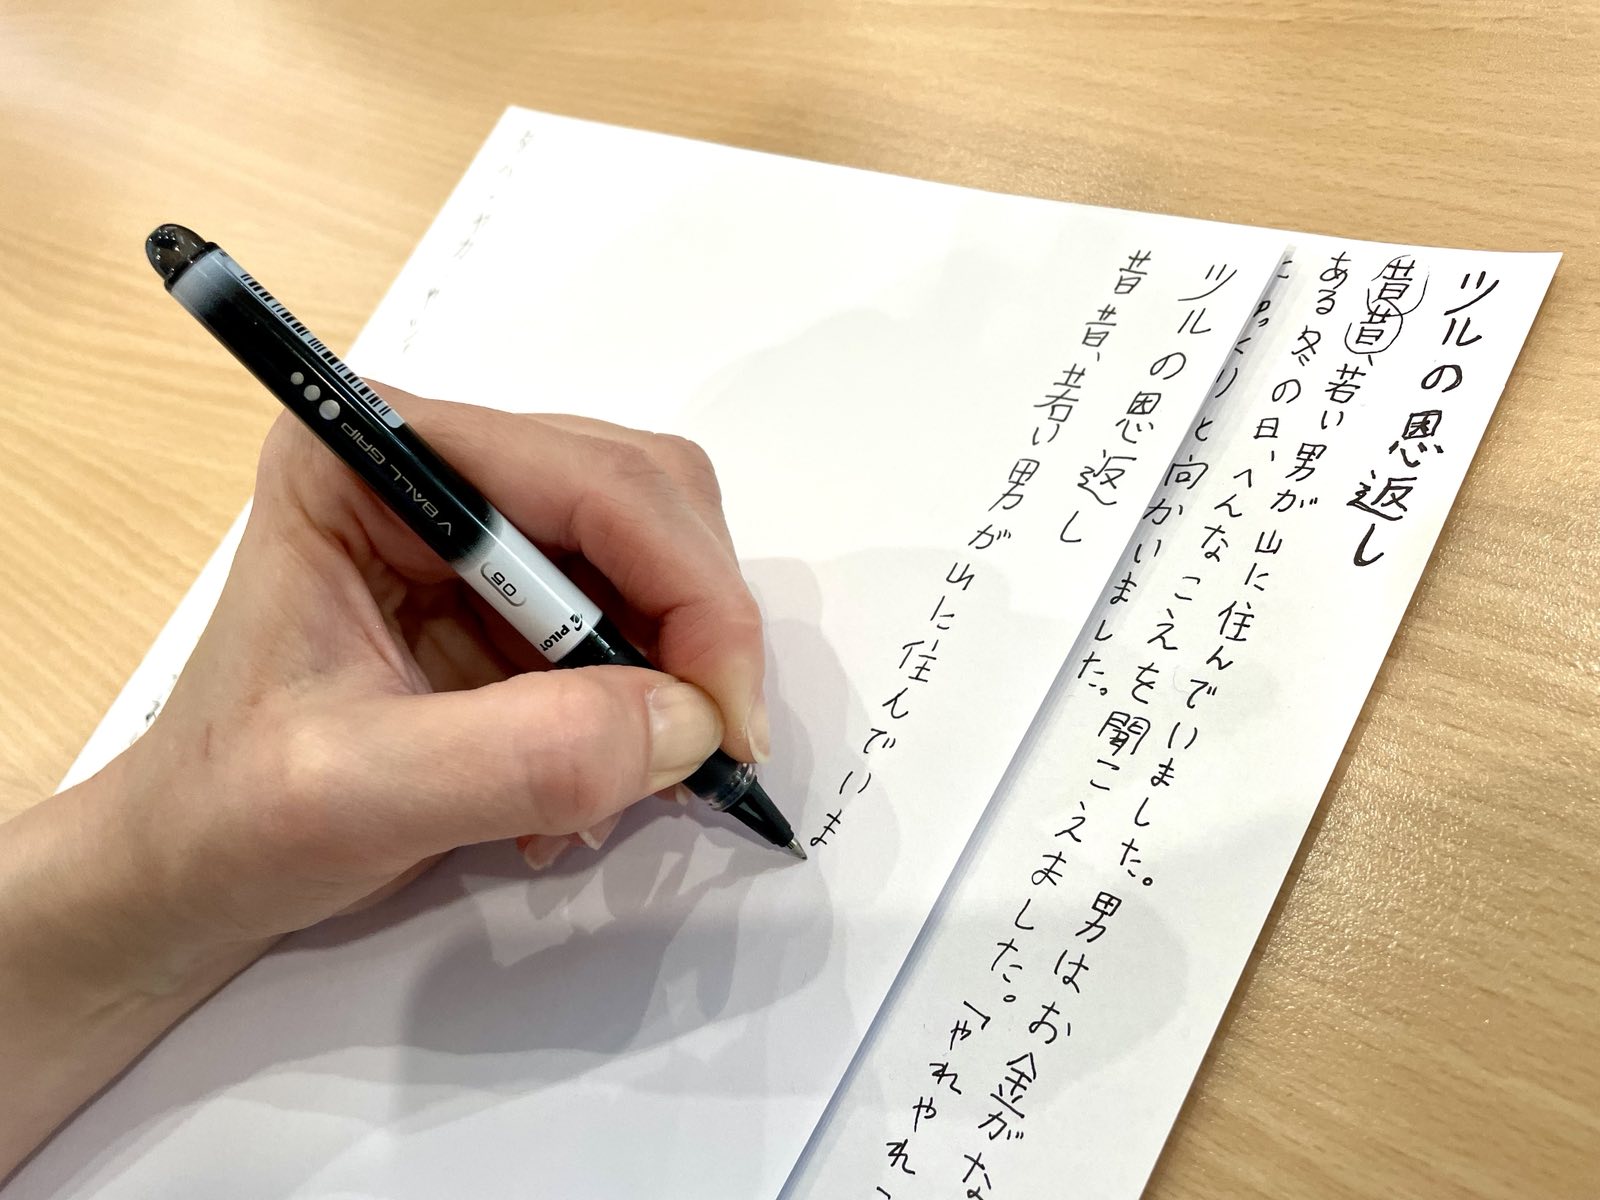 ツルの恩返し
昔昔、若い男が山に住んでいました。男はお金がな
ある冬の日、へんなこえを聞こえました。「やれやれ」
とゆっくりと向かいました。
ツルの恩返し
昔昔、若い男が山に住んでいま
V BALL GRIP
05
PILOT